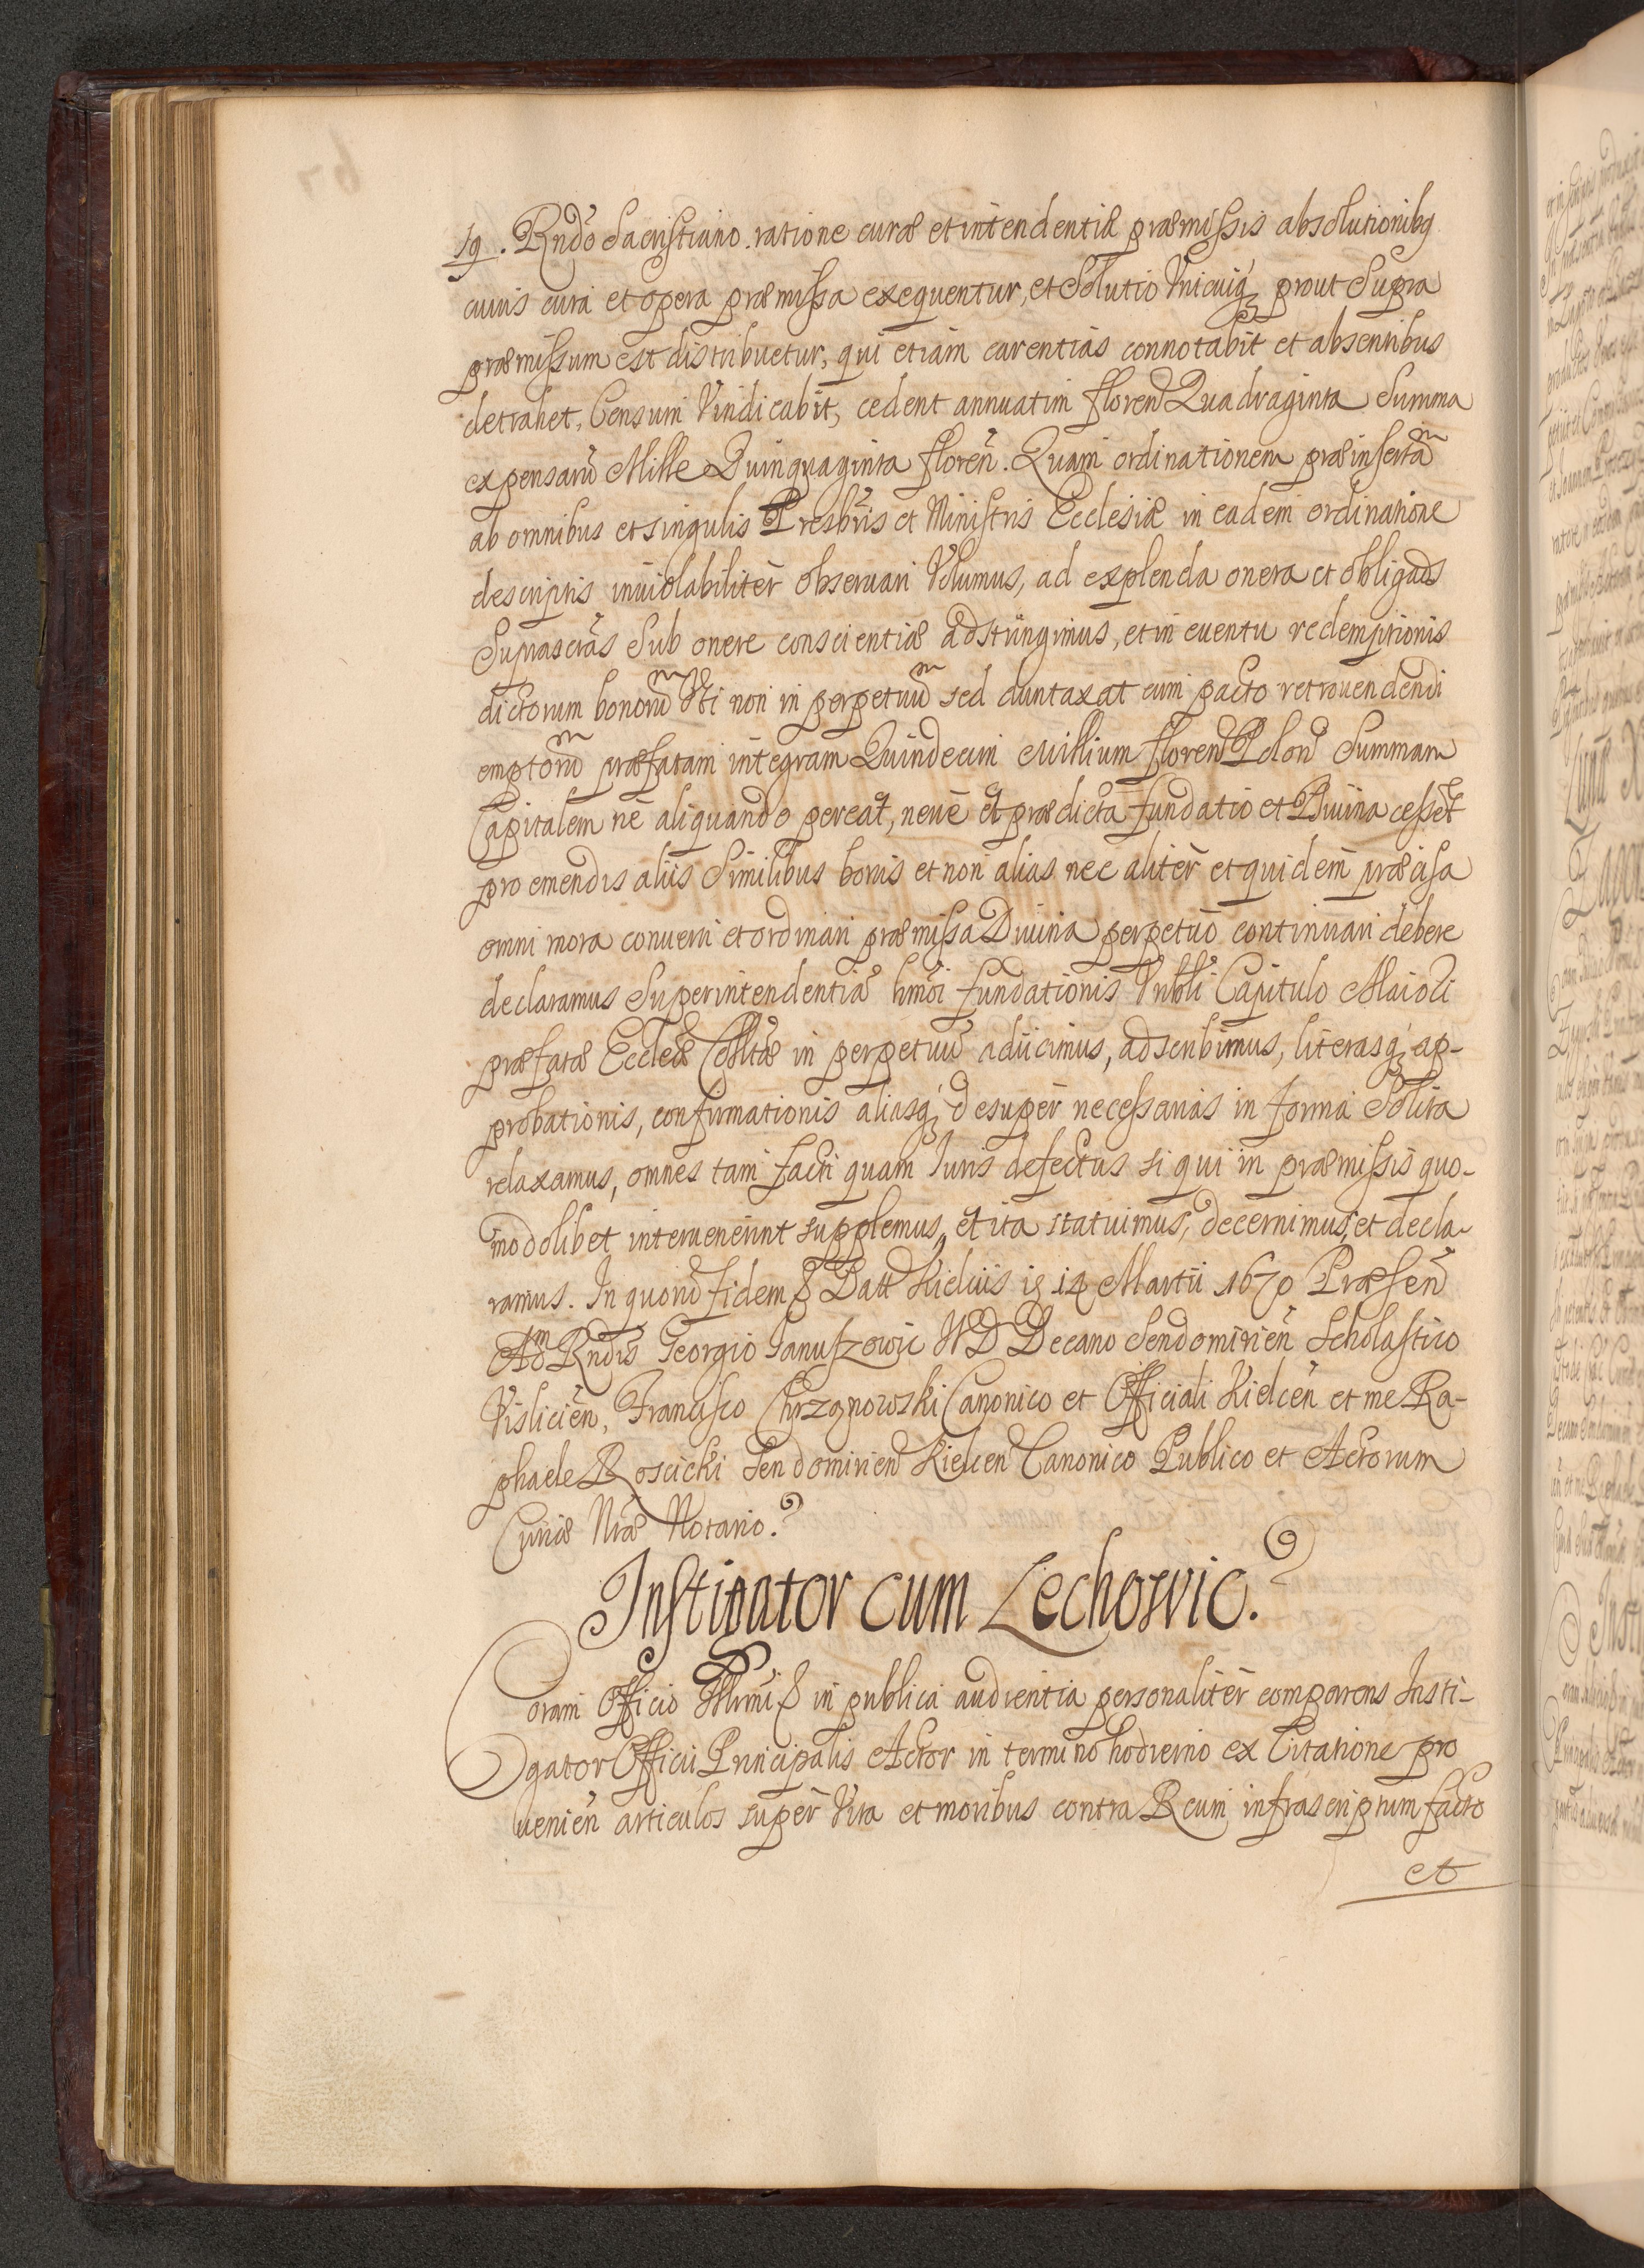 19. Rndo Sacristiano ratione curæ et intendentiæ præmissis absolutionibq
cuius cura et opera præmissa exequentur, et Solutio Vnicuiq prout Supra
præmissum est distribuetur, qui etiam carentias connotabit et absentibus
detrahet, Censum Vindicabit, cedent annuatim floren Quadraginta Summa
expensaru Mille Quinquaginta floren. Quam ordinationem præinsertam
ab omnibus et singulis Presbris et Ministris Ecclesiæ in eadem ordinatione
descriptis inuiolabiliter obseruari Volumus, ad explenda onera et obligaōs
Suprascrās Sub onere conscientiæ adstringimus, et in euentu redemptionis
dictorum bonorum Vti non in perpetuum sed duntaxat cum pacto retrouendendi
emptorum præfatam integram Quindecim Millium floren Polon Summam
Capitalem ne aliquando pereat, neue et prædicta fundatio et Diuina cesset
pro emendis aliis Similibus bonis et non alias nec aliter et quidem præcisa
omni mora conuerti et ordinari præmissa Diuina perpetuo continuari debere
declaramus Superintendentiæ hmōi fundationis Vnbli Capitulo Maiori
præfatæ Eccleæ Colltæ in perpetuu adiicimus, adscribimus, literasq ap-
probationis, confirmationis aliasq desuper necessarias in forma Solita
relaxamus, omnes tam facti quam Iuris defectus si qui in præmissis quo-
modolibet interuenerint supplemus, et ita statuimus, decernimus, et decla-
ramus. In quoru fidem Datt Kielciis 14 Martii 1670 Præsen
Adm Rndis Georgio Ianuszowic WD Decano Sendomirien Scholastico
Vislicien, Francisco Chrzanowski Canonico et Officiali Kielcen et me Ra-
phaele Roscicki Sendomirien Kielcen Canonico Publico et Actorum
Curiæ Nræ Notario.
Instigator cum Lechowic.
Coram Officio Illrmi in publica audientia personaliter comparens Insti-
gator Officii Principalis Actor in termino hodierno ex Citatione pro
uenien articulos super Vita et moribus contra Reum infrascriptum facto
et